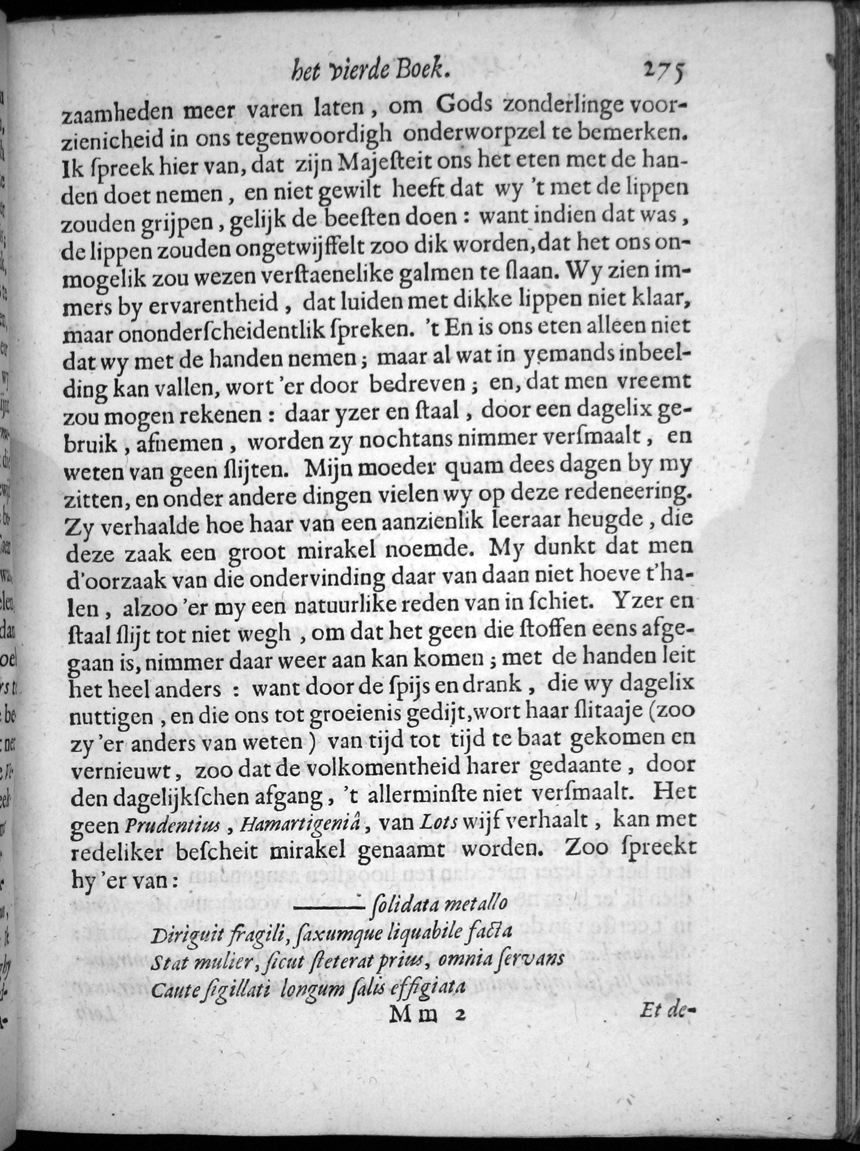 het vierde Boek. 275
zaamheden meer varen laten, om Gods zonderlinge voor-
zienicheid in ons tegenwoordigh onderworpzel te bemerken.
Ik ſpreek hier van, dat zijn Majeſteit ons het eten met de han-
den doet nemen, en niet gewilt heeft dat wy 't met de lippen
zouden grijpen, gelijk de beeſten doen: want indien dat was,
de lippen zouden ongetwijffelt zoo dik worden, dat het ons on-
mogelik zou wezen verſtaenelike galmen te ſlaan. Wy zien im-
mers by ervarentheid, dat luiden met dikke lippen niet klaar,
maar ononderſcheidentlik ſpreken. 't En is ons eten alleen niet
dat wy met de handen nemen; maar al wat in yemands inbeel-
ding kan vallen, wort 'er door bedreven; en, dat men vreemt
zou mogen rekenen: daar yzer en ſtaal, door een dagelix ge-
bruik, afnemen, worden zy nochtans nimmer verſmaalt, en
weten van geen ſlijten. Mijn moeder quam dees dagen by my
zitten, en onder andere dingen vielen wy op deze redeneering.
Zy verhaalde hoe haar van een aanzienlik leeraar heugde, die
deze zaak een groot mirakel noemde. My dunkt dat men
d'oorzaak van die ondervinding daar van daan niet hoeve t'ha-
len, alzoo 'er my een natuurlike reden van in ſchiet. Yzer en
ſtaal ſlijt tot niet wegh, om dat het geen die ſtoffen eens afge-
gaan is, nimmer daar weer aan kan komen; met de handen leit
het heel anders: want door de ſpijs en drank, die wy dagelix
nuttigen, en die ons tot groeienis gedijt, wort haar ſlitaaje (zoo
zy 'er anders van weten) van tijd tot tijd te baat gekomen en
vernieuwt, zoo dat de volkomentheid harer gedaante, door
den dagelijkſchen afgang, 't allerminſte niet verſmaalt. Het
geen Prudentius, Hamartigeniâ, van Lots wijf verhaalt, kan met
redeliker beſcheit mirakel genaamt worden. Zoo ſpreekt
hy 'er van:
——— ſolidata metallo
Diriguit fragili, ſaxumque liquabile facta
Stat mulier, ſicut ſteterat prius, omnia ſervans
Caute ſigillati longum ſalis effigiata
Mm 2 Et de-